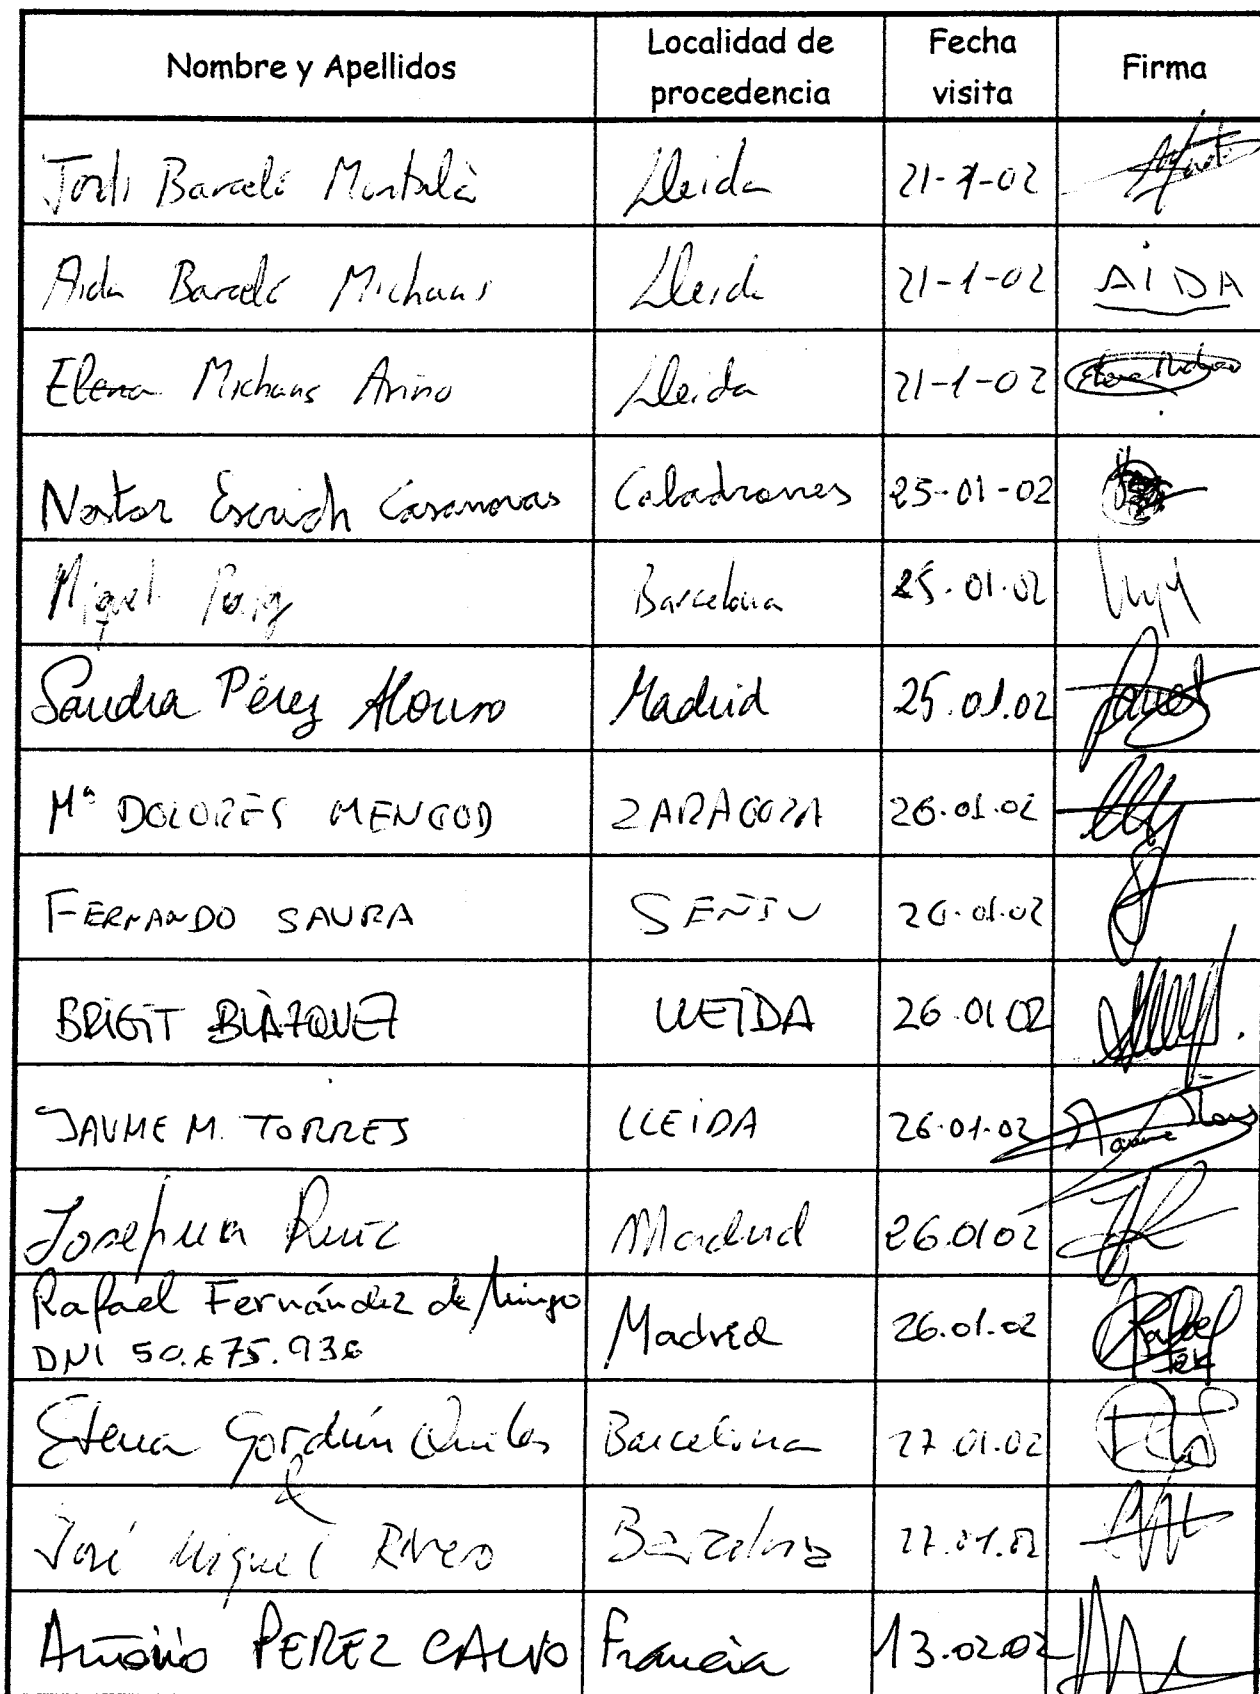 Nombre y Apellidos Localidad de procedencia Fecha visita Firma
Jordi Barceló Montalà Lleida 21-1-02
Aida Barceló Michans Lleida 21-1-02 AIDA
Elena Michans Ariño Lleida 21-1-02
Nestor Escrich Casanovas Caladrones 25-01-02
Miquel Puig Barcelona 25.01.02
Sandra Pérez Alonso Madrid 25.01.02
Mª DOLORES MENGOD ZARAGOZA 26.01.02
FERNANDO SAURA SEÑIU 26.01.02
BRIGIT BLÀZQUEZ LLEIDA 26.01.02
JAUME M. TORRES LLEIDA 26.01.02
Josephina Ruiz Madrid 26.01.02
Rafael Fernández de Mingo Madrid 26.01.02
DNI 50.675.936
Elena Gordún Quiles Barcelona 27.01.02
José Miguel Rivero Barcelona 27.01.02
Antonio PEREZ CALVO Francia 13.02.02